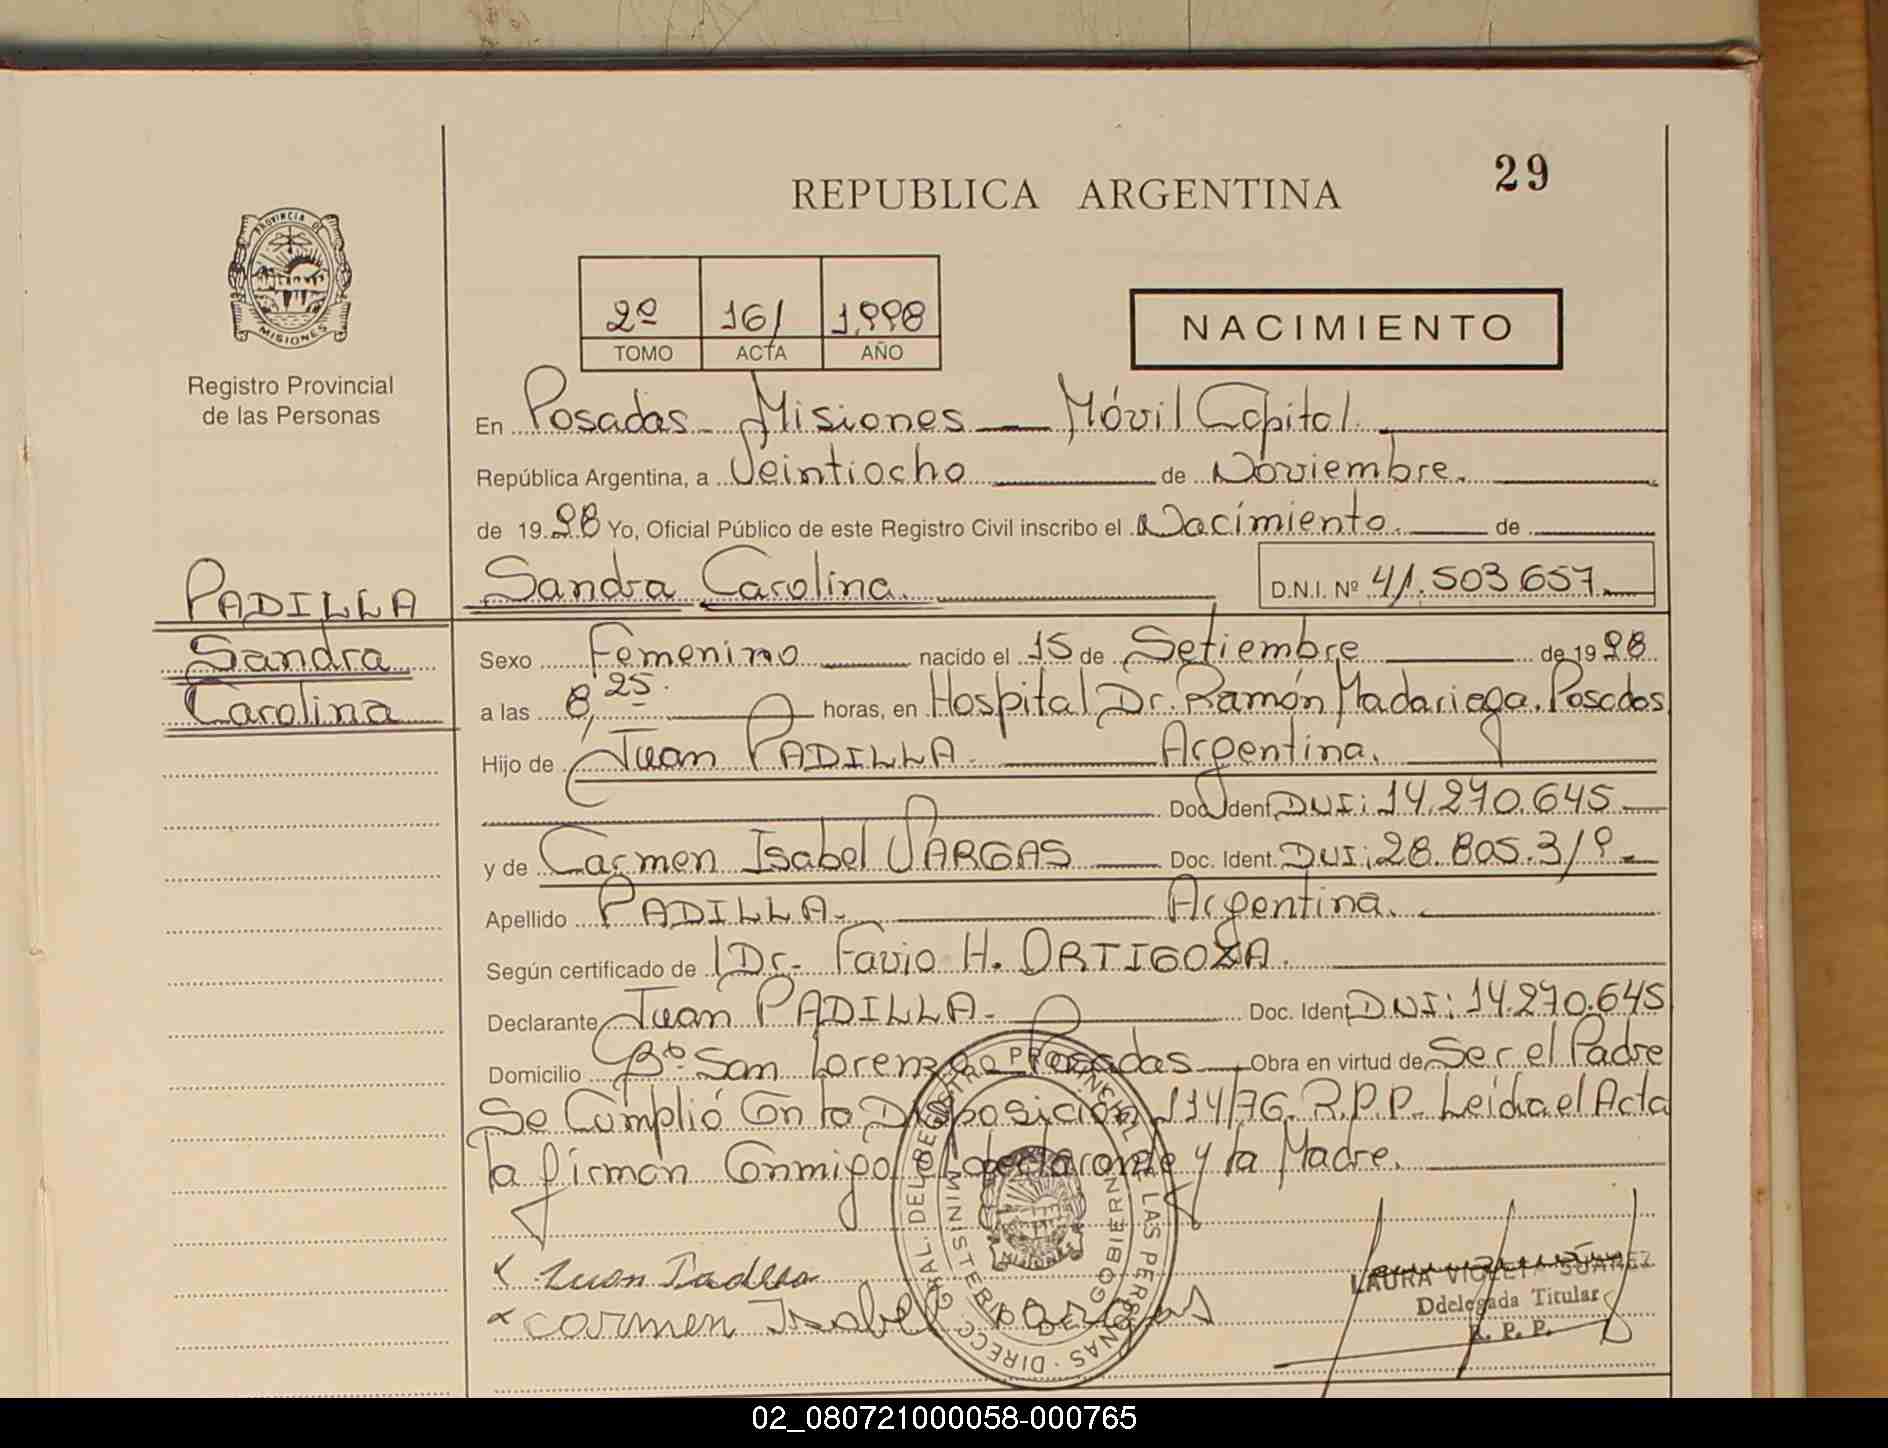 29
REPUBLICA ARGENTINA
PROVINCIA DE
MISIONES
Registro Provincial
de las Personas
2º 161 1.998
TOMO ACTA AÑO
NACIMIENTO
En Posadas - Misiones — Móvil Capital.
República Argentina, a Veintiocho de Noviembre.
de 19 98 Yo, Oficial Público de este Registro Civil inscribo el Nacimiento. de
PADILLA
Sandra
Carolina
Sandra Carolina. D.N.I. Nº 41.503.657
Sexo Femenino nacido el 15 de Setiembre de 19 98
a las 8,25. horas, en Hospital Dr. Ramón Madariaga. Posadas
Hijo de Juan PADILLA. Argentina.
Doc. Ident. DNI: 14.270.645
y de Carmen Isabel VARGAS Doc. Ident. DNI: 28.805.319
Apellido PADILLA. Argentina.
Según certificado de Dr. Favio H. ORTIGOZA.
Declarante Juan PADILLA. Doc. Ident. DNI: 14.270.645
Domicilio Bº San Lorenzo - Posadas Obra en virtud de Ser el Padre
Se Cumplió Con la Disposición 114/76. R.P.P. Leída el Acta
la firman Conmigo el declarante y la Madre.
x Juan Padilla
x Carmen Isabel vargas
DIRECC. GRAL. DEL REGISTRO PROVINCIAL DE LAS PERSONAS
MINISTERIO DE GOBIERNO
MISIONES
LAURA VIOLETA SUAREZ
Ddelegada Titular
R. P. P.
02_080721000058-000765